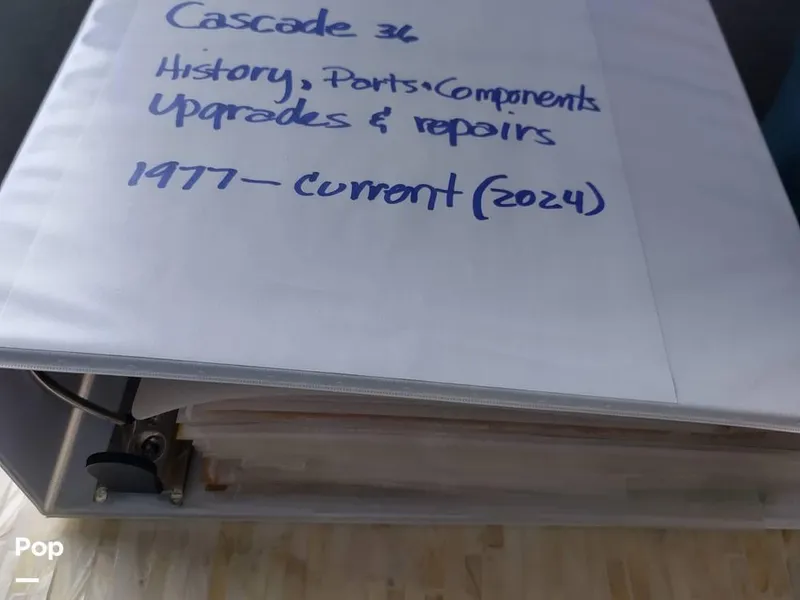 Cascade 36
History, Parts, Components
Upgrades & repairs
1977 — Current (2024)
Pop